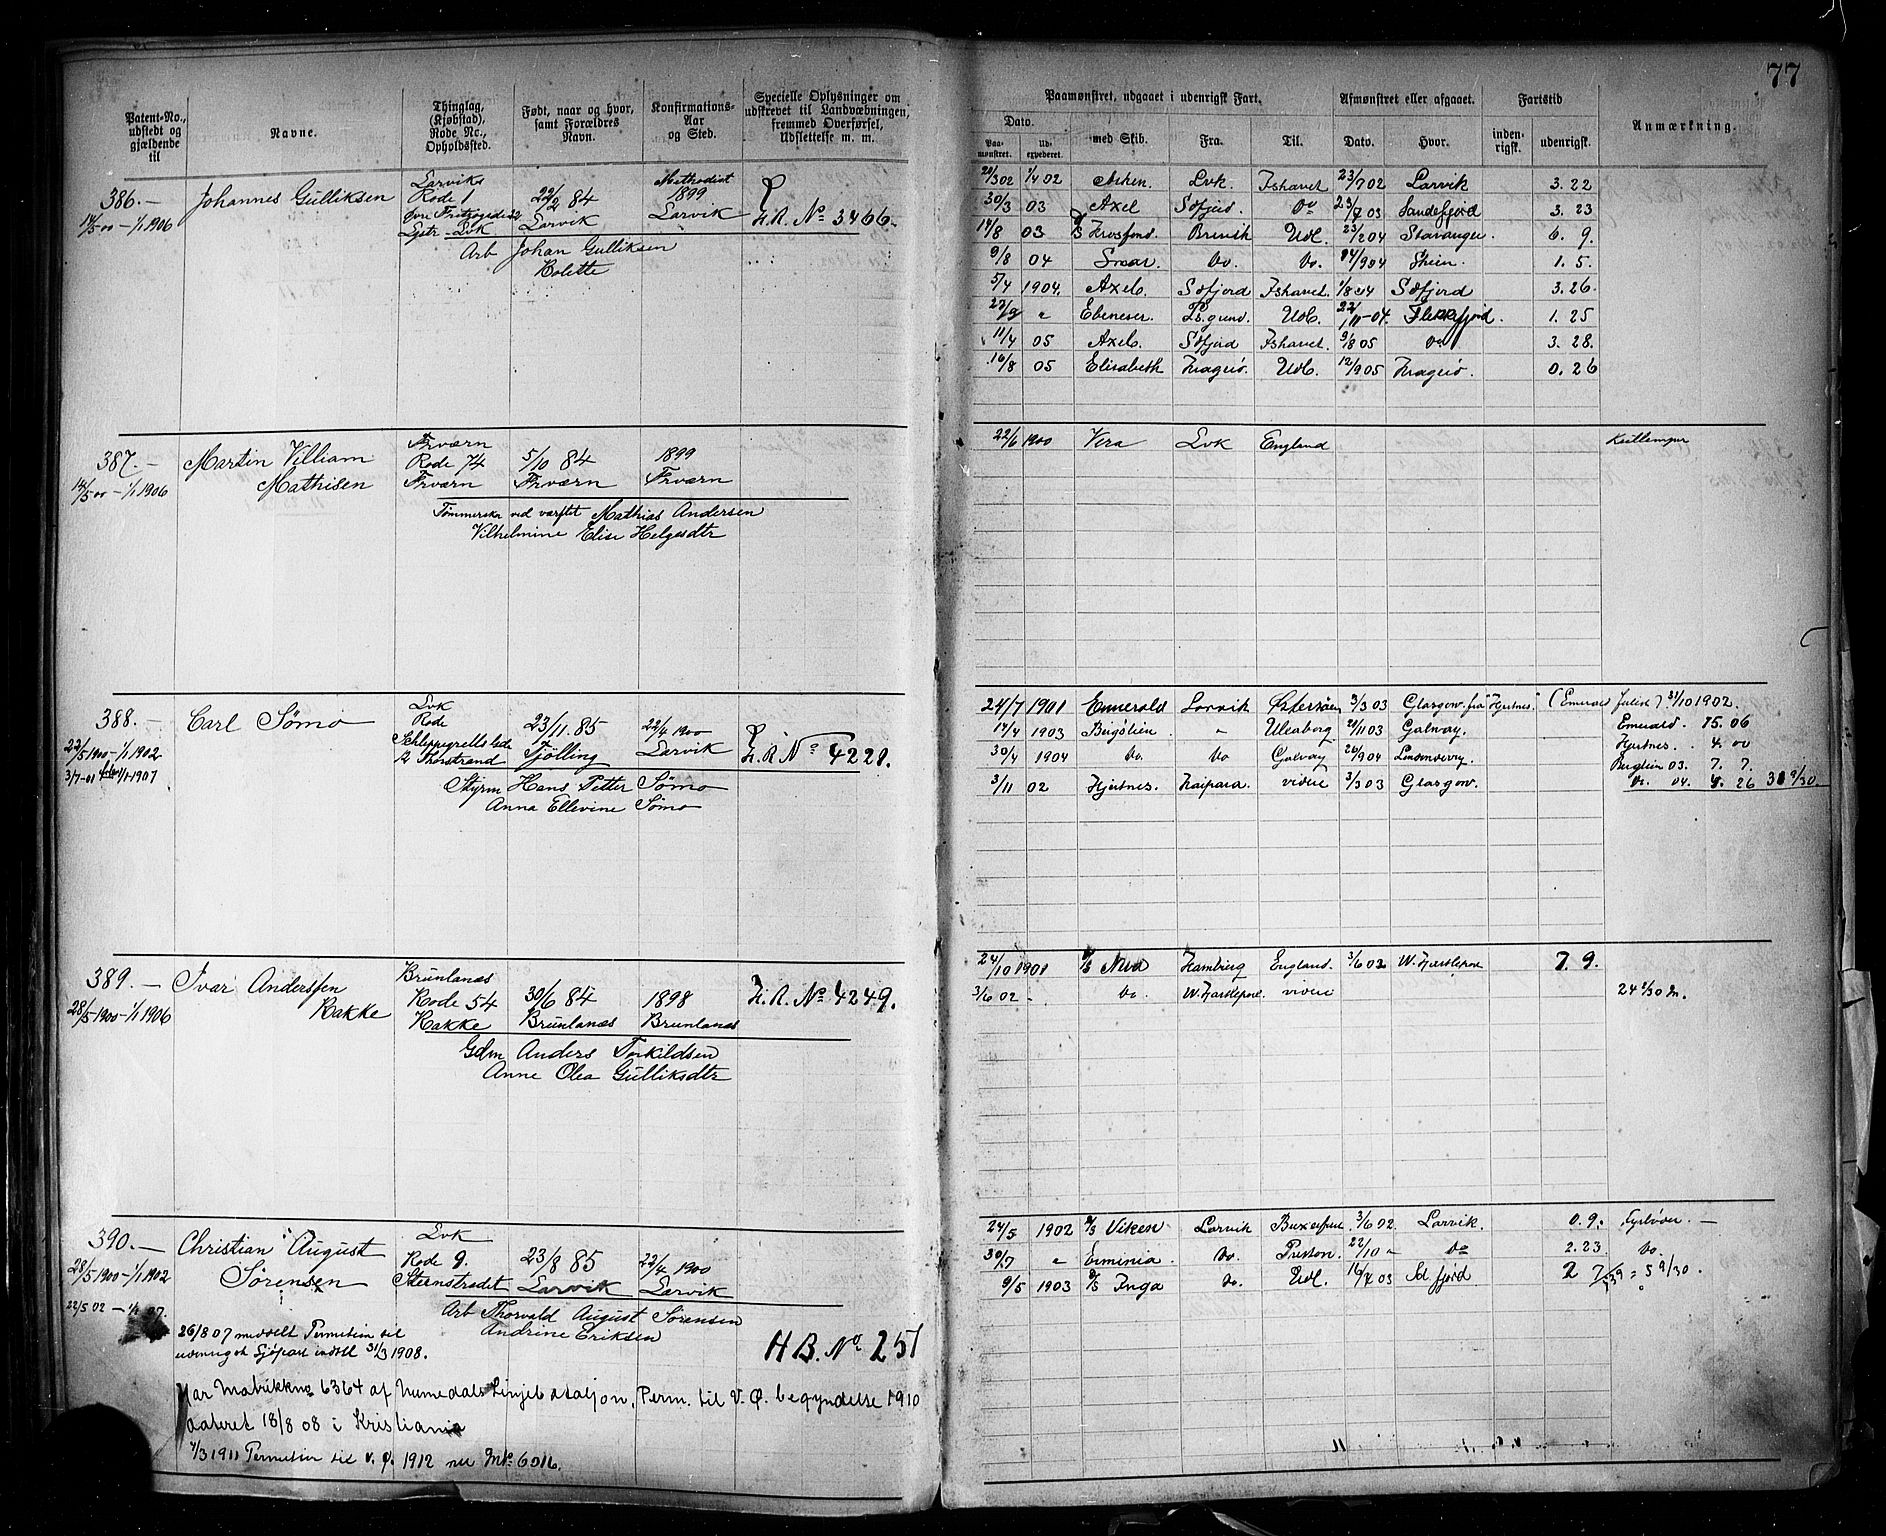 77
Patent-No., udstedt og gjældende til
Navne.
Thinglag, (Kjøbstad), Rode No., Opholdssted.
Født, naar og hvor, samt Forældres Navn.
Konfirmations-Aar og Sted.
Specielle Oplysninger om udskrevet til Landvæbningen, fremmed Overførsel, Udslettelse m. m.
Paamønstret, udgaaet i udenrigsk Fart.
Dato.
Paa-mønstret.
Ud-expederet.
med Skib.
Fra.
Til.
Afmønstret eller afgaaet.
Dato.
Hvor.
Fartstid
inden-rigsk.
udenrigsk.
Anmærkning.
386.— Johannes Gulliksen
14/5 00 – 1/1 1906
Larviks
Rode 1
Lvk
22/2 84
Larvik
Methodist
1899
Larvik
H.R. No 3466.
Arb Johan Gulliksen
Bolette
1/4 02 Lvk Ishavet 23/7 02 Larvik 3. 22
30/3 03 Axel Sdfjord. Do 23/7 03 Sandefjord 3. 23
14/8 03 Brevik Udl. 23/2 04 Stavanger. 6. 9.
9/8 04 Snar. Do. Do. Skien. 1. 5.
5/4 1904. Axel. Sdfjord Ishavet. 1/8 04 Sdfjord 3. 26.
Ebeneser. Udl. 22/11-04. Flekkefjord. 1. 25
11/4 05 Axel. Sdfjord Ishavet. 9/8 05 Do 3. 28.
16/8 05 Elisabeth Kragerø. Udl. 12/9 05 Kragerø. 0. 26
387.— Martin Villiam
Mathisen
14/5 00 – 1/1 1906
Frværn
Rode 74
Frværn
5/10 84
Frværn
1899
Frværn
Tømmermr ved værftet Mathias Andersen
Vilhelmine Elise Helgesdtr
22/6 1900 Vera Lvk England
388.— Carl Sømo
22/5 1900 – 1/1 1902
3/7-01 1/1-1907
Lvk
Rode
23/11. 85
Tjølling
22/4 1900
Larvik
H.R No 4228.
Styrm Hans Petter Sømo
Anna Ellevine Sømo
24/7 1901 Emmerald Larvik Østersøen 3/3 03 Glasgow. fra "Hjertnes" (Emerald Julest) 31/10 1902.
17/4 1903 Bergslien „ Uleaborg 20/11 03 Galway. Emerald. 15. 06
30/4 1904 Do. Do. Galway 26/9 04 Londonderry. Hjertnes. 4. 00
Bergslien 03. 7. 7.
3/11 02 Hjertnes. videre 3/3 03 Glasgow. Do. 04. 4. 26
389.— Ivar Anderssen
Rakke
28/5 1900 – 1/1 1906
Brunlanæs
Rode 54
Rakke
30/6 84
Brunlanæs
1898
Brunlanæs
H.R. No 4249.
Gdm Anders Torkildsen
Anne Olea Gulliksdtr
24/10 1901 Hamburg England. 3/6 02 W. Hartlepool 7. 9.
3/6 02 –. Do. W. Hartlepool. videre
390.— Christian August
Sørensen
28/5 1900 – 1/1 1902
22/5 02 – 1/1 07.
Lvk
Rode 9.
Steenstrædet
23/8 85
Larvik
22/4 1900
Larvik
Arb Thorvald August Sørensen
Andrine Eriksen
H B. No 251
26/8 07 meddelt Permission til
udenrigsk Sjøfart indtil 31/3 1908.
Har Matrikkno 6364 af Numedals Linjebataljon. Perm. til V. Ø. begyndelse 1910
dateret 18/8 08 i Kristiania
1/3 1911 Permission til v. ø. 1912 nu Mtr. 6016.
24/5 1902 D/S Viken Larvik 3/6 02 Larvik. 0. 9. Fyrbøder. —
30/7 „ Erminia. Do. Preston. 22/10 „ Do 2. 23. Do.
9/5 1903 D/S Inga Do. Udl. 16/7 03 Sdfjord 2 7